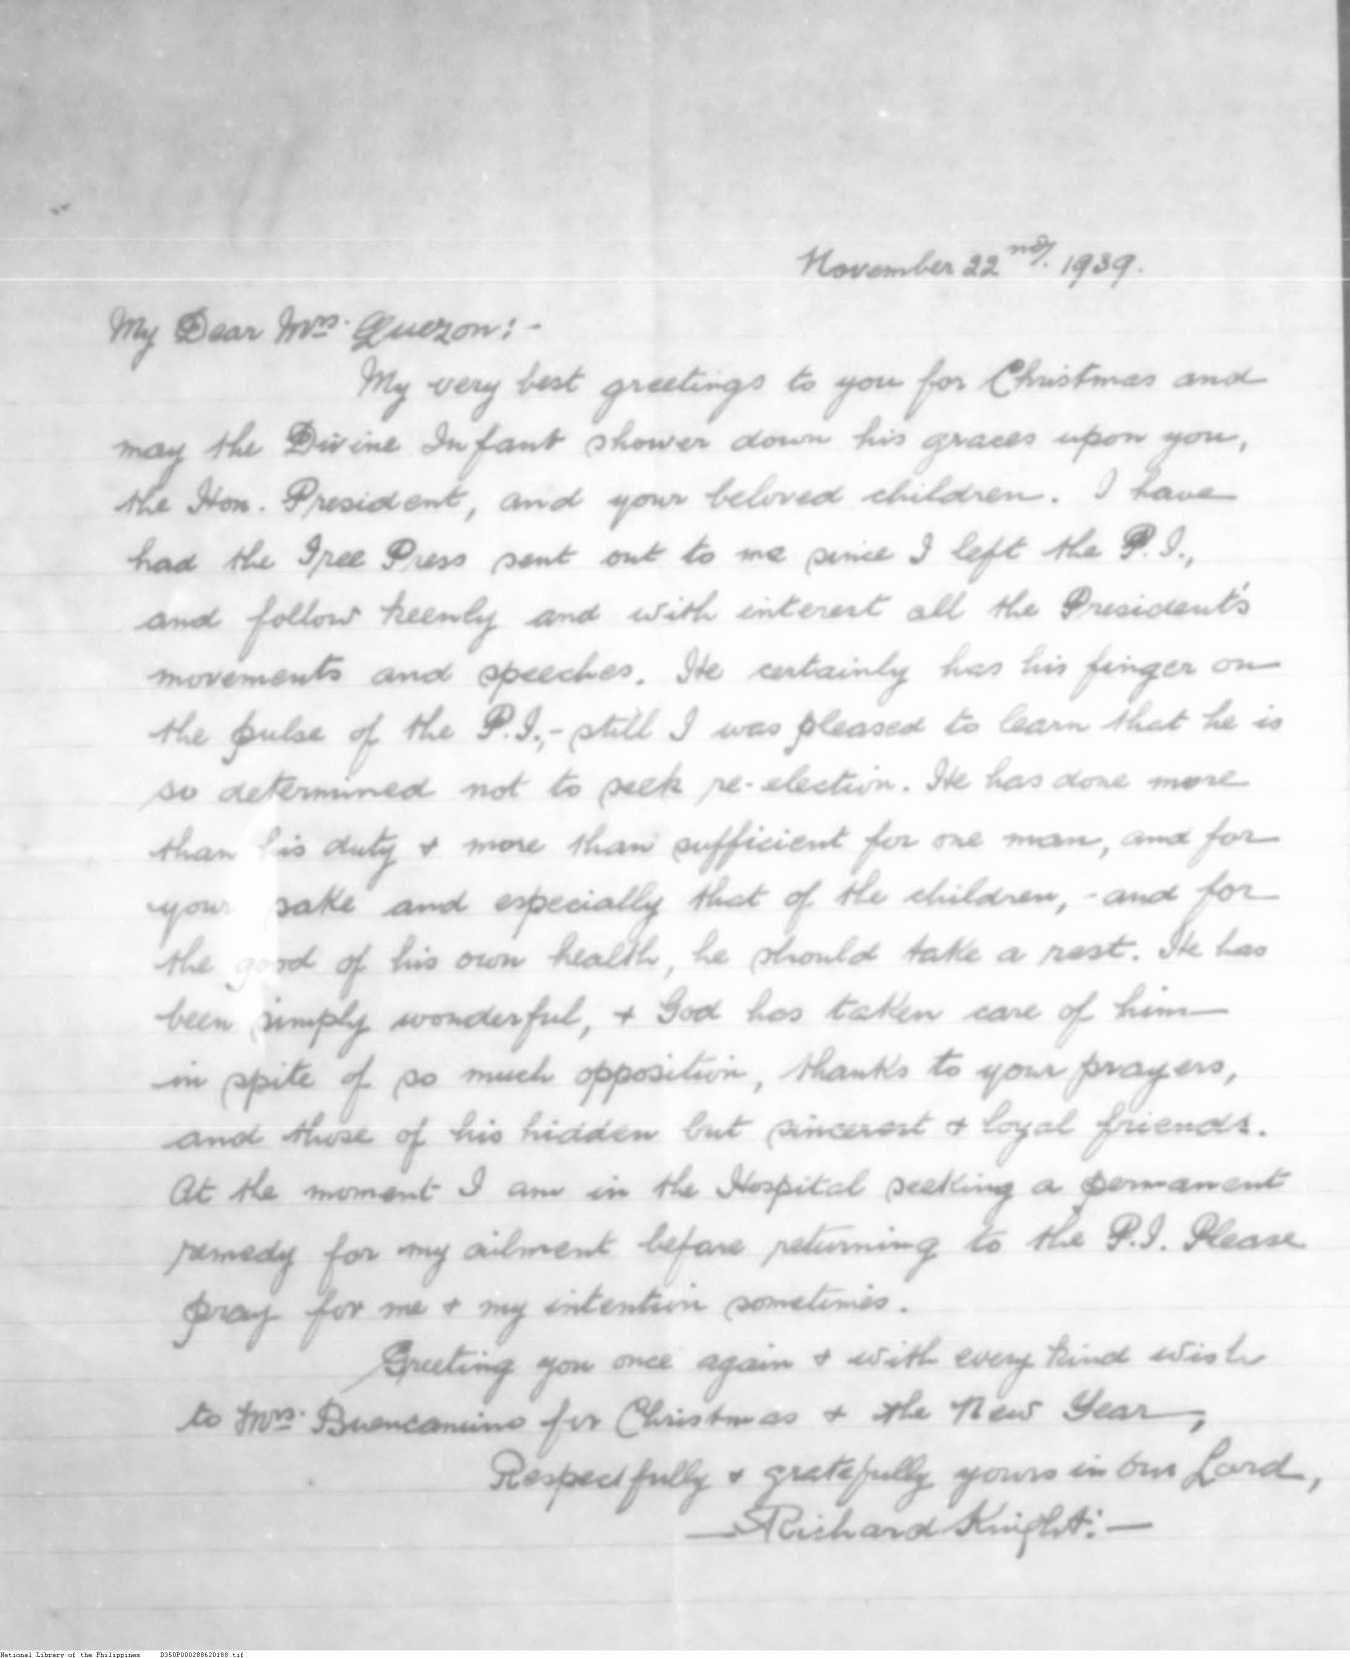 November 22nd. 1939.
My Dear Mrs. Quezon:-
My very best greetings to you for Christmas and
may the Divine Infant shower down his graces upon you,
the Hon. President, and your beloved children. I have
had the Free Press sent out to me since I left the P.I.,
and follow keenly and with interest all the President's
movements and speeches. He certainly has his finger on
the pulse of the P.I.,- still I was pleased to learn that he is
so determined not to seek re-election. He has done more
than his duty & more than sufficient for one man, and for
your sake and especially that of the children, - and for
the good of his own health, he should take a rest. He has
been simply wonderful, & God has taken care of him
in spite of so much opposition, thanks to your prayers,
and those of his hidden but sincerest & loyal friends.
At the moment I am in the Hospital seeking a permanent
remedy for my ailment before returning to the P.I. Please
pray for me & my intention sometimes.
Greeting you once again & with every kind wish
to Mrs. Buencamino for Christmas & the New Year,
Respectfully & gratefully yours in Our Lord,
—Richard Knight:—
National Library of the Philippines D350P000288620188.tif